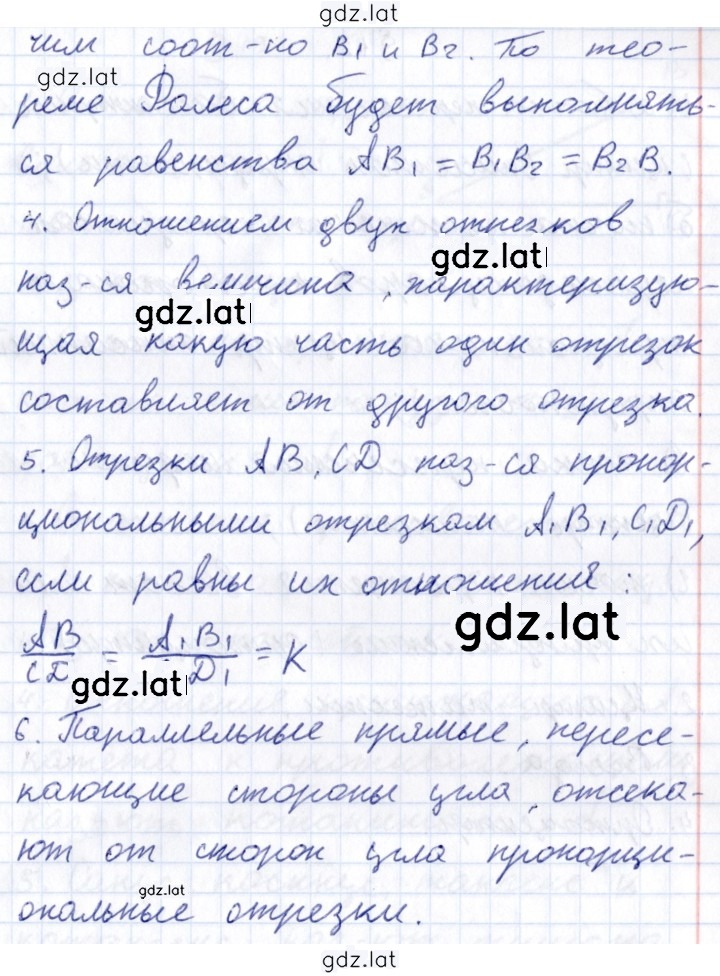 gdz.lat
чим соот-но B₁ и B₂. По тео-
gdz.lat
реме Фалеса будет выполнять-
ся равенства AB₁ = B₁B₂ = B₂B.
4. Отношением двух отрезков
gdz.lat
наз-ся величина, характеризую-
gdz.lat
щая какую часть один отрезок
составляет от другого отрезка.
5. Отрезки AB, CD наз-ся пропор-
циональными отрезкам A₁B₁, C₁D₁,
если равны их отношений :
gdz.lat
AB/CD = A₁B₁/C₁D₁ = K
gdz.lat
6. Параллельные прямые, пересе-
кающие стороны угла, отсека-
ют от сторон угла пропорци-
gdz.lat
ональные отрезки.
gdz.lat